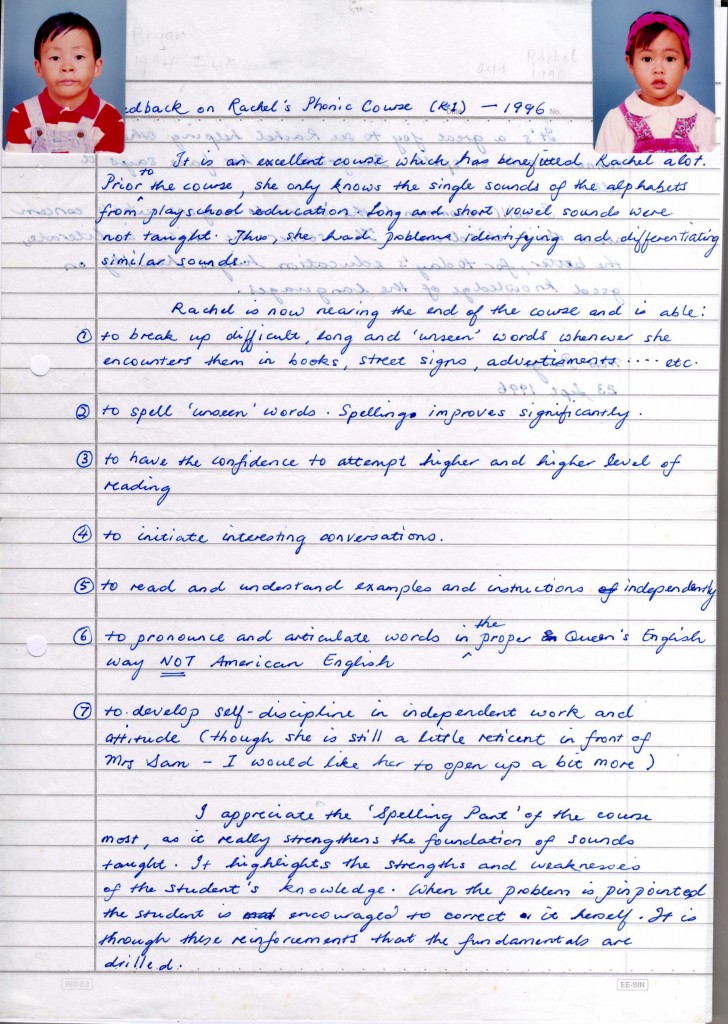 Rachel
1990
edback on Rachel's Phonic Course (K1) – 1996 No.
It is an excellent course which has benefitted Rachel alot.
Prior to the course, she only knows the single sounds of the alphabets
from playschool education. Long and short vowel sounds were
not taught. Thus, she had problems identifying and differentiating
similar sounds.
Rachel is now nearing the end of the course and is able:
① to break up difficult, long and 'unseen' words whenever she
encounters them in books, street signs, advertisments .... etc.
23 Sept 1996
② to spell 'unseen' words. Spelling improves significantly.
③ to have the confidence to attempt higher and higher level of
reading
④ to initiate interesting conversations.
⑤ to read and understand examples and instructions of independently
⑥ to pronounce and articulate words in the proper Queen's English
way NOT American English
⑦ to develop self-discipline in independent work and
attitude (though she is still a little reticent in front of
Mrs Sam – I would like her to open up a bit more)
I appreciate the 'Spelling Part' of the course
most, as it really strengthens the foundation of sounds
taught. It highlights the strengths and weaknesses
of the student's knowledge. When the problem is pinpointed
the student is encouraged to correct it herself. It is
through these reinforcements that the fundamentals are
drilled.
EE-SIN